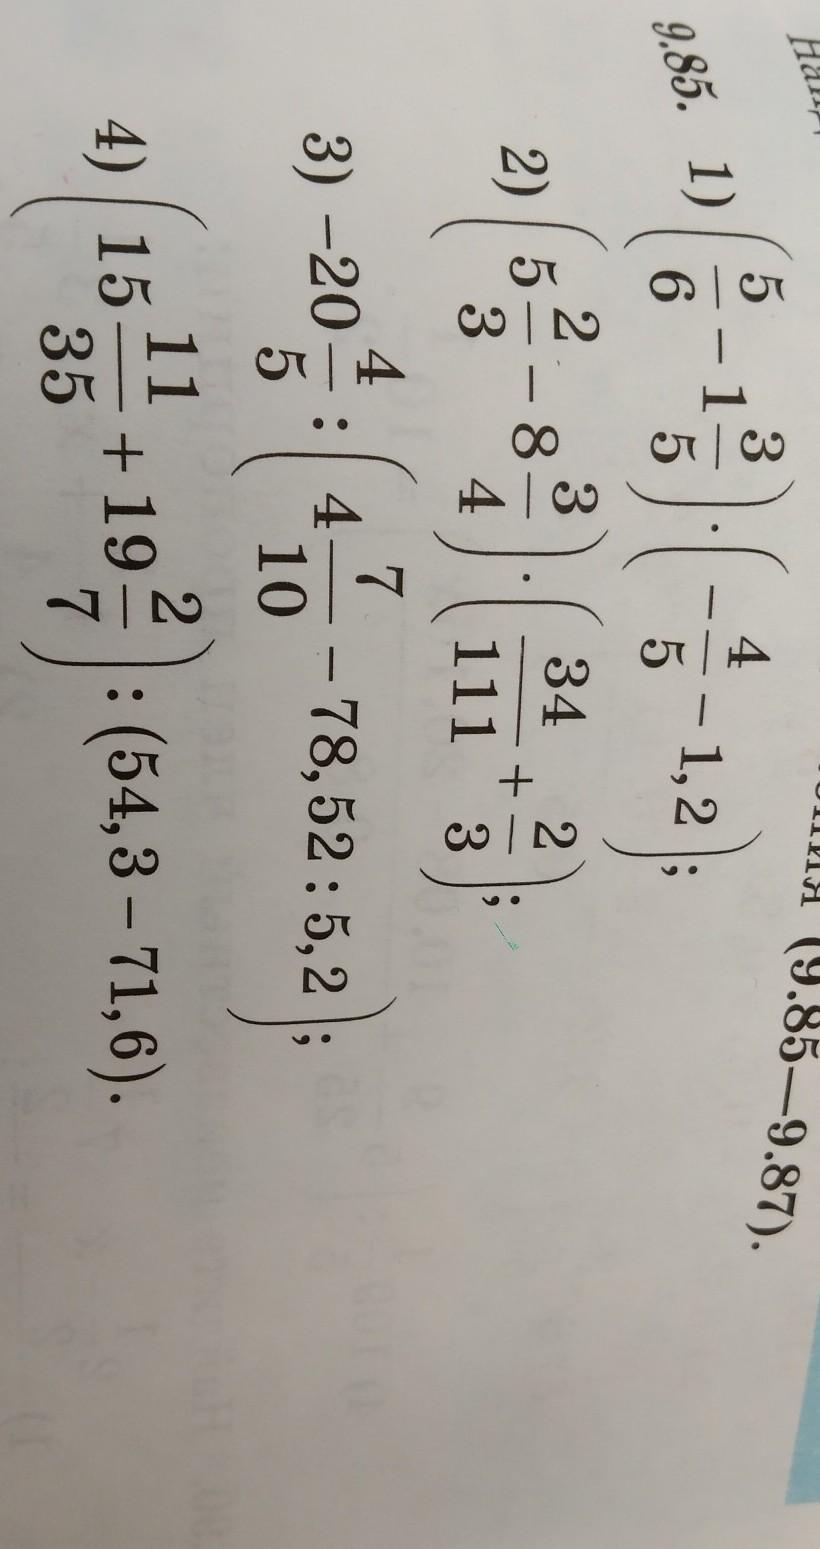 (9.85—9.87).
9.85. 1) (5/6 − 1 3/5) · (−4/5 − 1,2);
2) (5 2/3 − 8 3/4) · (34/111 + 2/3);
3) −20 4/5 : (4 7/10 − 78,52 : 5,2);
4) (15 11/35 + 19 2/7) : (54,3 − 71,6).